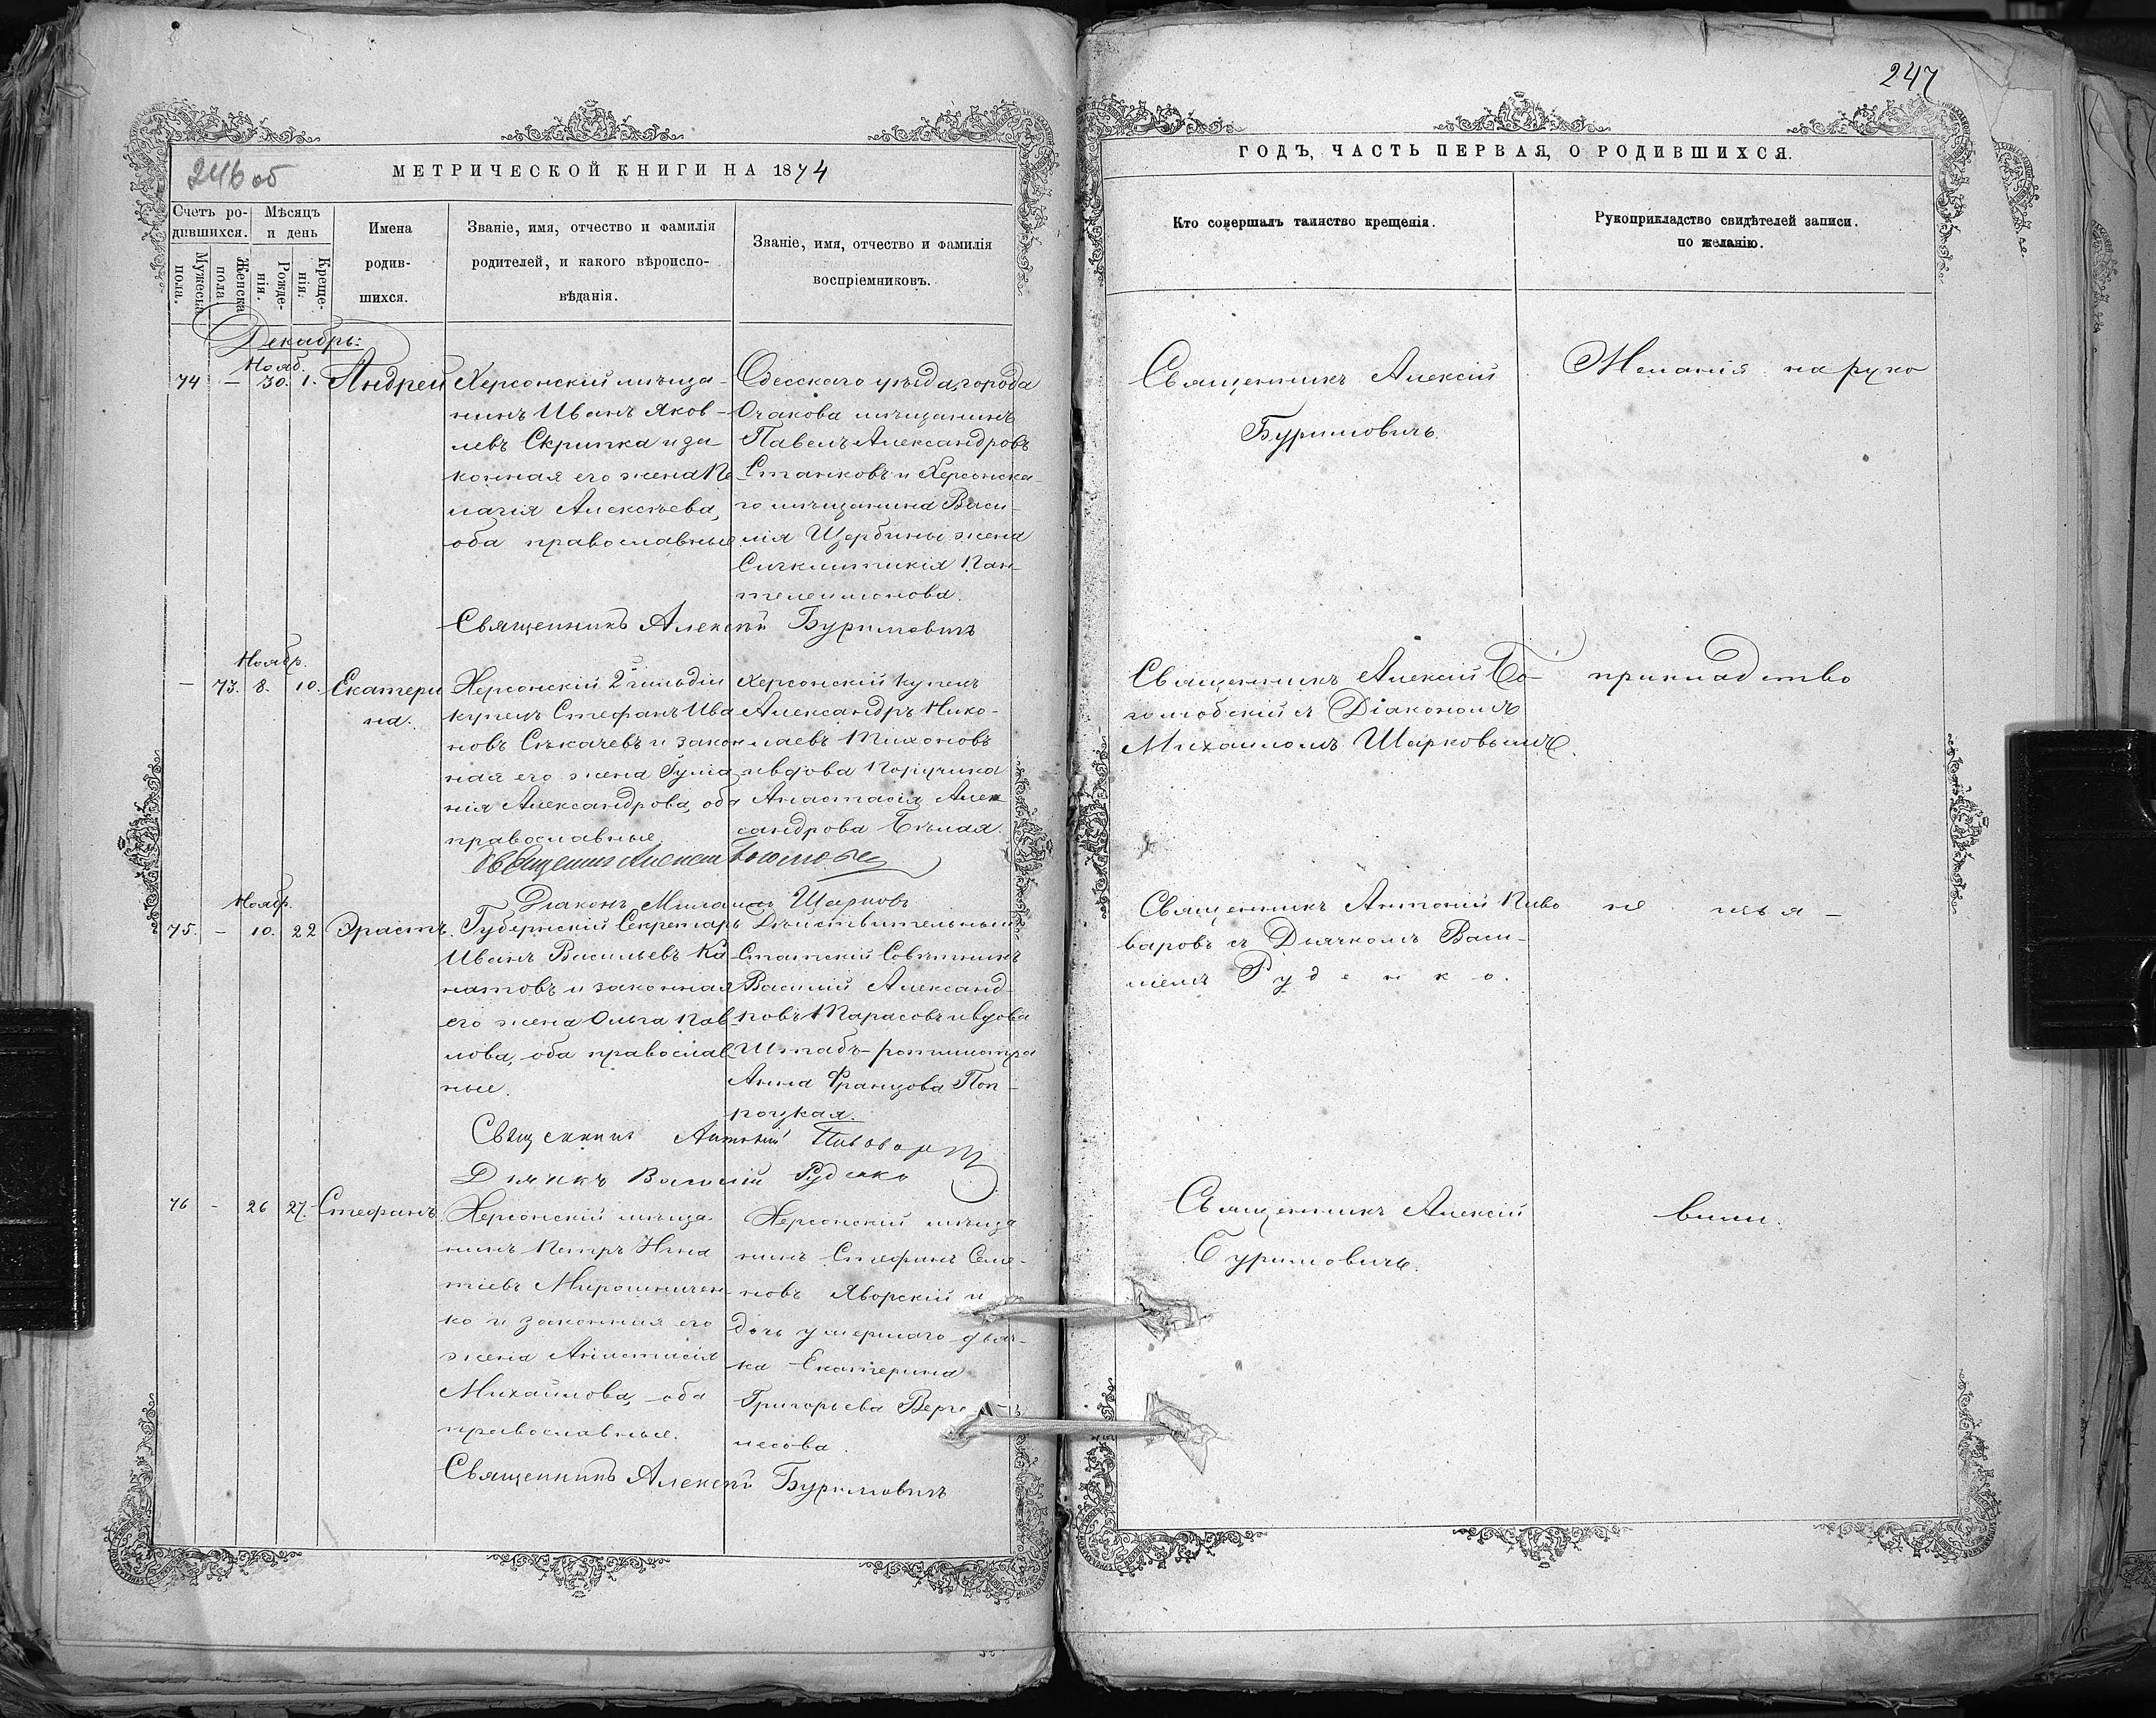 247
246 об
МЕТРИЧЕСКОЙ КНИГИ НА 1874
Счетъ ро-
дившихся.
Мужеска
пола.
Женска
пола
Мѣсяцъ
и день
Рожде-
нія.
Креще-
нія.
Имена
родив-
шихся.
Званіе, имя, отчество и фамилія
родителей, и какого вѣроиспо-
вѣданія.
Званіе, имя, отчество и фамилія
воспріемниковъ.
Декабрь:
Нояб.
74 — 30. 1. Андрей
Херсонскій мѣща-
нинъ Иванъ Яков-
левъ Скрипка и за-
конная его жена Пе
лагія Алексѣева,
оба православные
Одесскаго уѣзда, города
Очакова мѣщанинъ
Павелъ Александровъ
Станковъ и Херсонска-
го мѣщанина Васи-
лія Щербины жена
Сигклитикія Пан-
телеимонова.
Священникъ Алексѣй Буримовичъ
Ноябр.
— 73. 8. 10. Екатери
на.
Херсонскій 2й гильдіи
купецъ Стефанъ Ива
новъ Сѣкачевъ и закон
ная его жена Гума
нія Александрова, оба
православные
Херсонскій купецъ
Александръ Нико-
лаевъ Тихоновъ
и вдова Поручика
Анастасія Алек
сандрова Бѣлая.
Священникъ Алексій
Діаконъ Михаилъ Шарковъ
Ноябр.
75. — 10. 22 Эрастъ.
Губернскій Секретарь
Иванъ Васильевъ Ка
натовъ и законная
его жена Ольга Пав
лова, оба православ
ные.
Дѣйствительный
Статскій Совѣтникъ
Василій Александ-
ровъ Тарасовъ и вдова
Штабъ-ротмистра
Анна Францова Поп-
роцкая.
Священникъ Антоній Пивоваровъ
Дьячкъ Василій Руденко
76 — 26 27. Стефанъ.
Херсонскій мѣща
нинъ Петръ Игна
тіевъ Мирошничен-
ко и законная его
жена Анастасія
Михайлова, оба
православные.
Херсонскій мѣща
нинъ Стефанъ Семе-
новъ Яворскій и
дочь умершаго дьяч-
ка Екатерина
Григорьева
Священникъ Алексѣй Буримовичъ
ГОДЪ, ЧАСТЬ ПЕРВАЯ, О РОДИВШИХСЯ.
Кто совершалъ таинство крещенія.
Рукоприкладство свидѣтелей записи.
по желанію.
Священникъ Алексій
Буримовичъ.
Желанія на руко
Священникъ Алексій Бо-
голюбскій съ Діакономъ
Михаиломъ Шарковымъ.
прикладство
Священникъ Антоній Пиво
варовъ съ Дьячкомъ Васи-
ліемъ Руденко.
не изъя-
Священникъ Алексій
Буримовичъ.
вили.